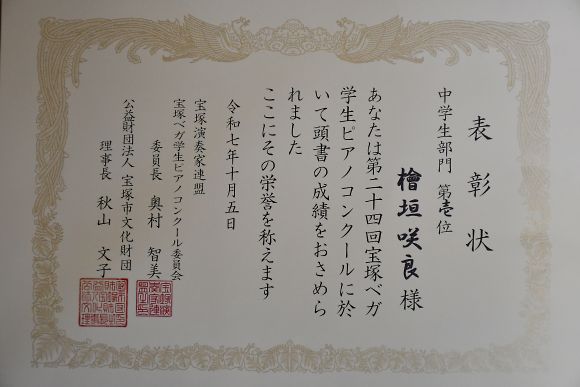 表彰状
中学生部門 第壱位
檜垣咲良様
あなたは第二十四回宝塚ベガ
学生ピアノコンクールに於
いて頭書の成績をおさめら
れました
ここにその栄誉を称えます
令和七年十月五日
宝塚演奏家連盟
宝塚ベガ学生ピアノコンクール委員会
委員長 奥村 智美
公益財団法人 宝塚市文化財団
理事長 秋山 文子